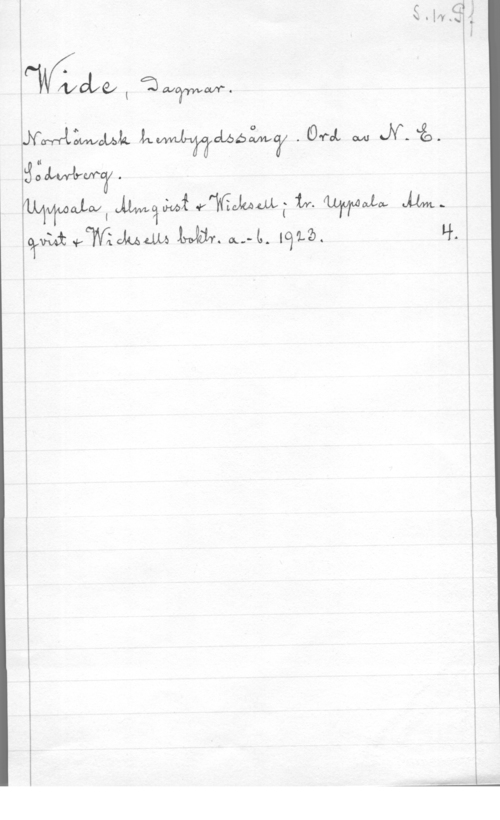 S. Tr. Pf
Wide, Dagmar.
Norrländsk hembygdssång. Ord av N. E.
Söderberg.
Uppsala, Almqvist & Wicksell; tr. Uppsala Alm-
qvist & Wicksells boktr. a.-b. 1923. 4.